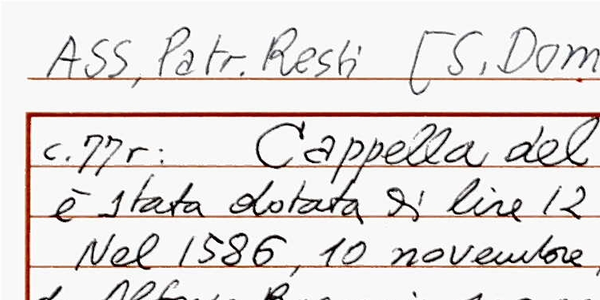 ASS, Patr. Resti [S. Dom
c. 77r: Cappella del
è stata dotata di lire 12
Nel 1586, 10 novembre,